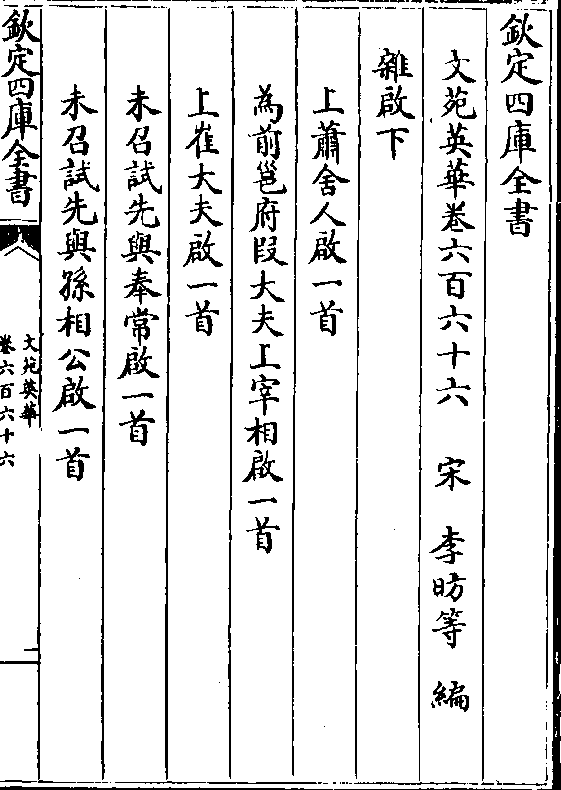 欽定四庫全書
文苑英華卷六百六十六 宋 李昉等 編
雜啟下
上蕭舍人啟一首
為前邕府段大夫上宰相啟一首
上崔大夫啟一首
未召試先與奉常啟一首
未召試先與孫相公啟一首
欽定四庫全書
文苑英華
卷六百六十六
一